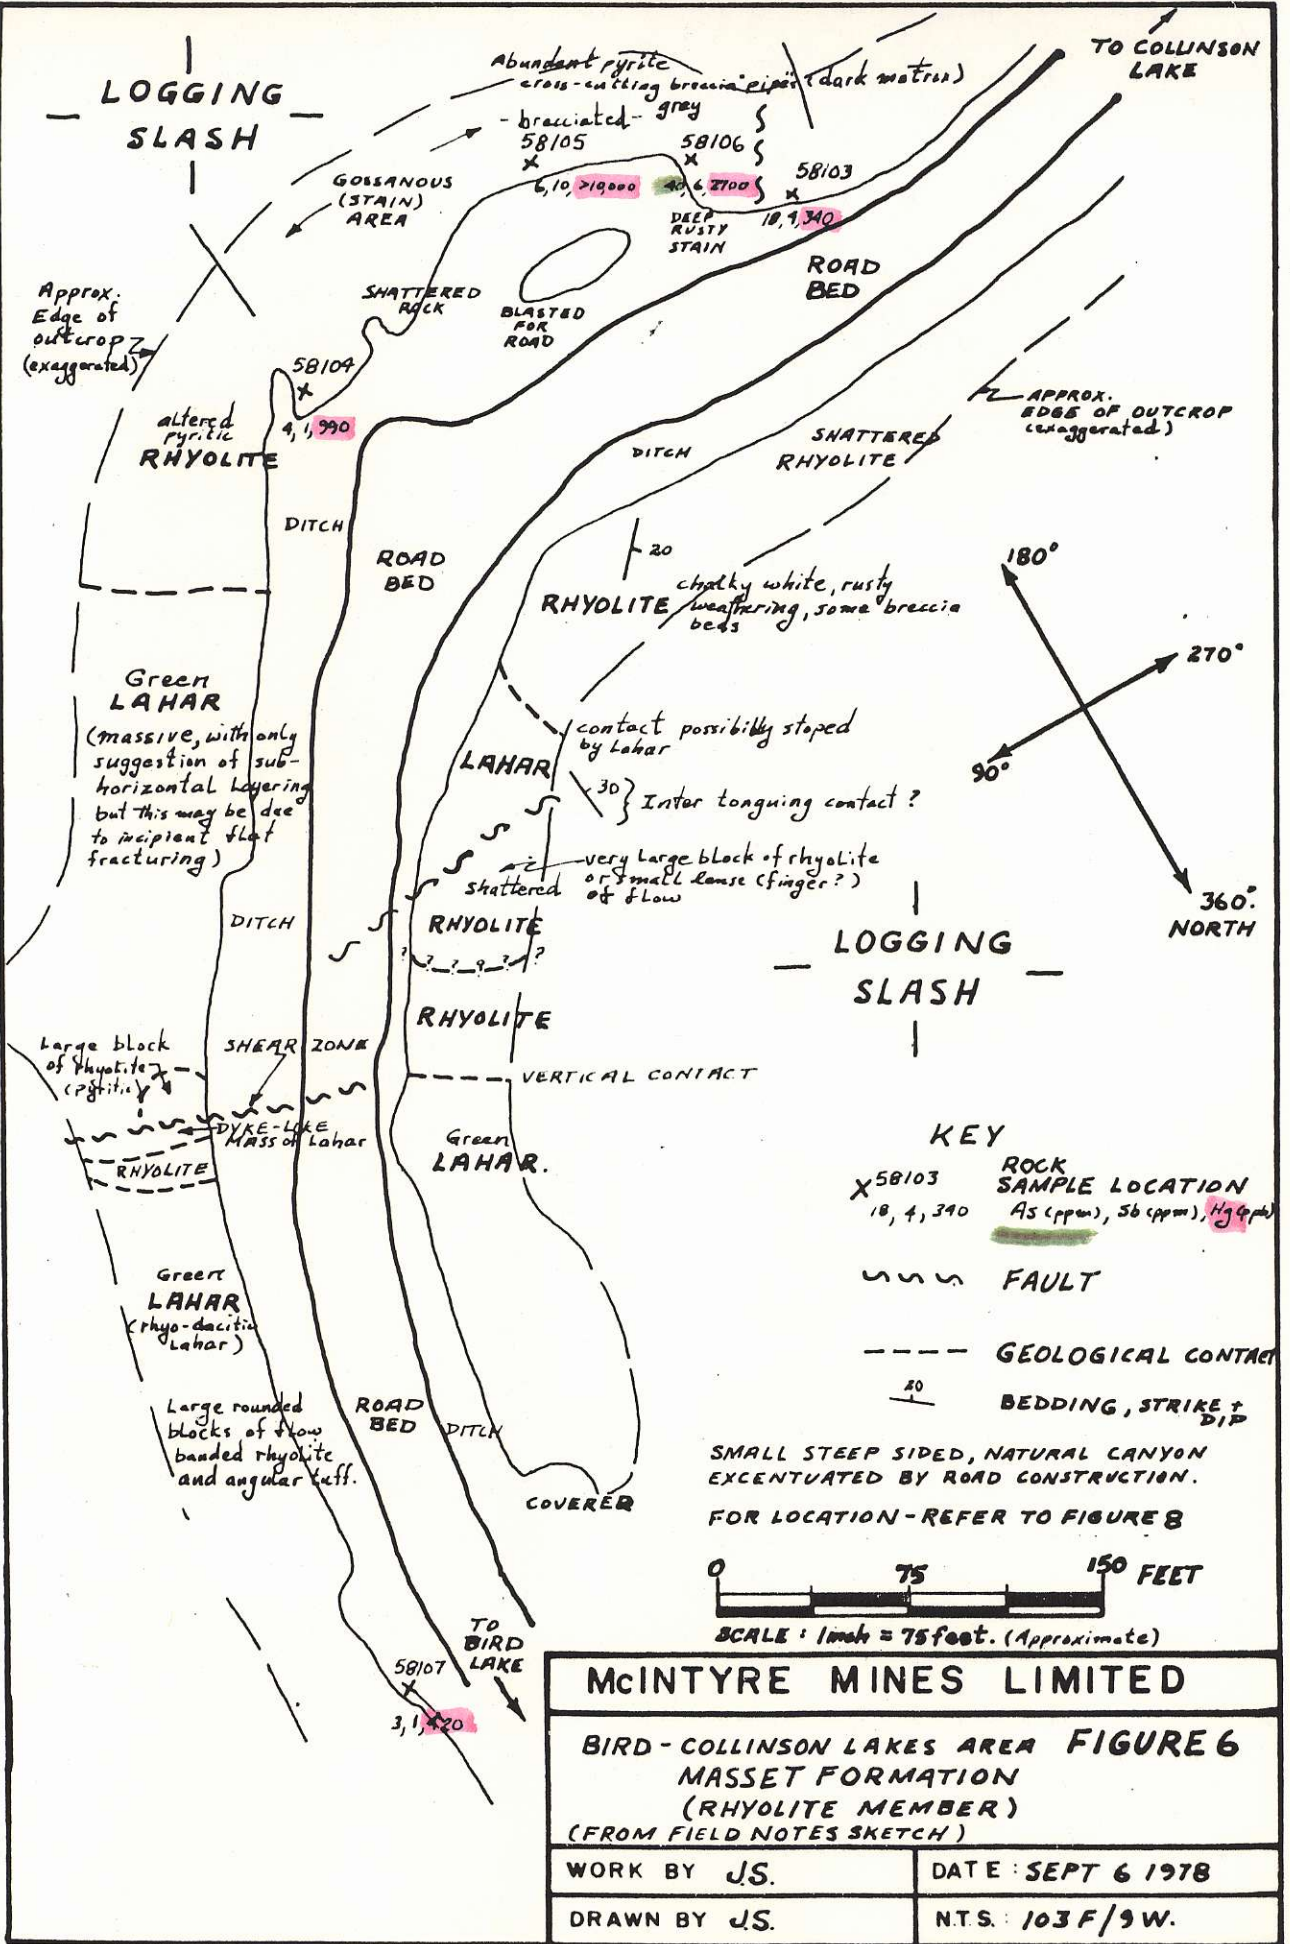 TO COLLINSON
LAKE
LOGGING
SLASH
Abundant pyrite
cross-cutting breccia "pipes" (dark matrix)
grey
- brecciated -
58105
6, 10, >10,000
58106
40, 6, 2700
58103
18, 4, 340
GOSSANOUS
(STAIN)
AREA
DEEP
RUSTY
STAIN
ROAD
BED
SHATTERED
ROCK
BLASTED
FOR
ROAD
Approx.
Edge of
outcrop
(exaggerated)
58104
4, 1, 990
altered
pyritic
RHYOLITE
APPROX.
EDGE OF OUTCROP
(exaggerated)
SHATTERED
RHYOLITE
DITCH
DITCH
ROAD
BED
20
RHYOLITE
chalky white, rusty
weathering, some breccia
beds
180°
270°
90°
360°
NORTH
Green
LAHAR
(massive, with only
suggestion of sub-
horizontal layering
but this may be due
to incipient flat
fracturing)
contact possibilly stoped
by Lahar
LAHAR
30
Inter tonguing contact ?
very large block of rhyolite
or small lense (finger?)
of flow
shattered
RHYOLITE
? ? ? ? ? ?
DITCH
LOGGING
SLASH
RHYOLITE
Large block
of rhyolite
(pyritic)
SHEAR ZONE
VERTICAL CONTACT
DYKE-LIKE
MASS of Lahar
RHYOLITE
Green
LAHAR.
KEY
58103
18, 4, 340
ROCK
SAMPLE LOCATION
As (ppm), Sb (ppm), Hg (ppb)
FAULT
GEOLOGICAL CONTACT
20
BEDDING, STRIKE +
DIP
Green
LAHAR
(rhyo-dacitic
Lahar)
Large rounded
blocks of flow
banded rhyolite
and angular tuff.
ROAD
BED
DITCH
COVERED
SMALL STEEP SIDED, NATURAL CANYON
EXCENTUATED BY ROAD CONSTRUCTION.
FOR LOCATION - REFER TO FIGURE 8
0 75 150 FEET
SCALE : 1 inch = 75 feet. (Approximate)
TO
BIRD
LAKE
58107
3, 1, 420
McINTYRE MINES LIMITED
BIRD - COLLINSON LAKES AREA FIGURE 6
MASSET FORMATION
(RHYOLITE MEMBER)
(FROM FIELD NOTES SKETCH)
WORK BY J.S.
DATE : SEPT 6 1978
DRAWN BY J.S.
N.T.S. : 103 F/9 W.